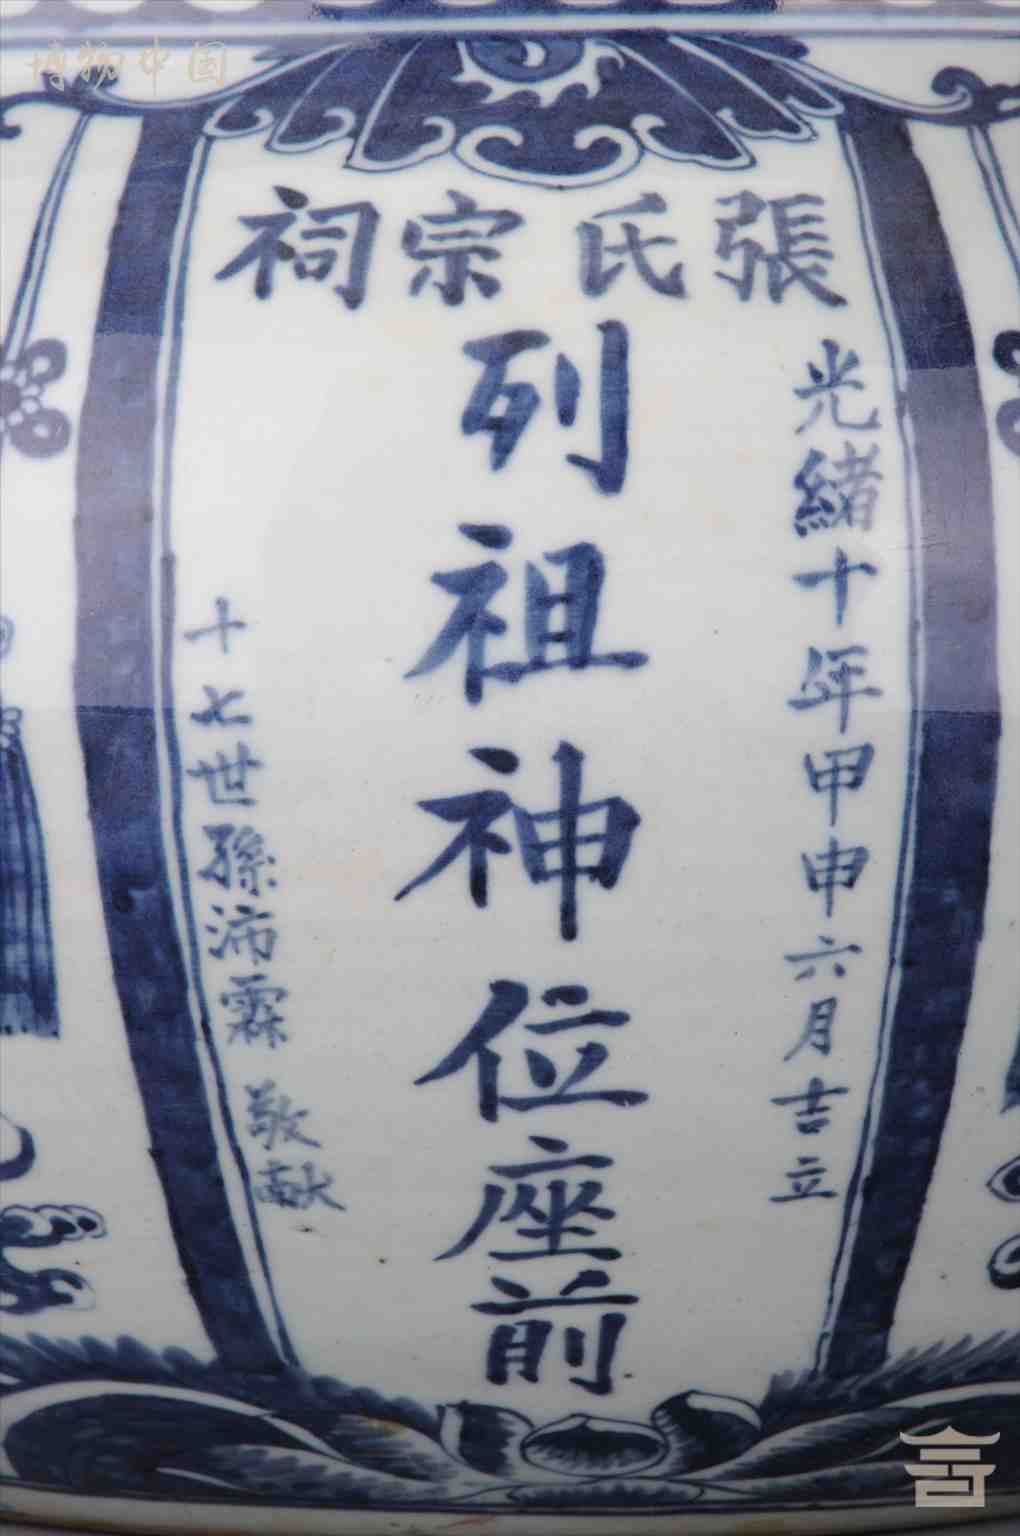 張氏宗祠
光緒十年甲申六月吉立
列祖神位座前
十七世孫沛霖敬献
博物中国